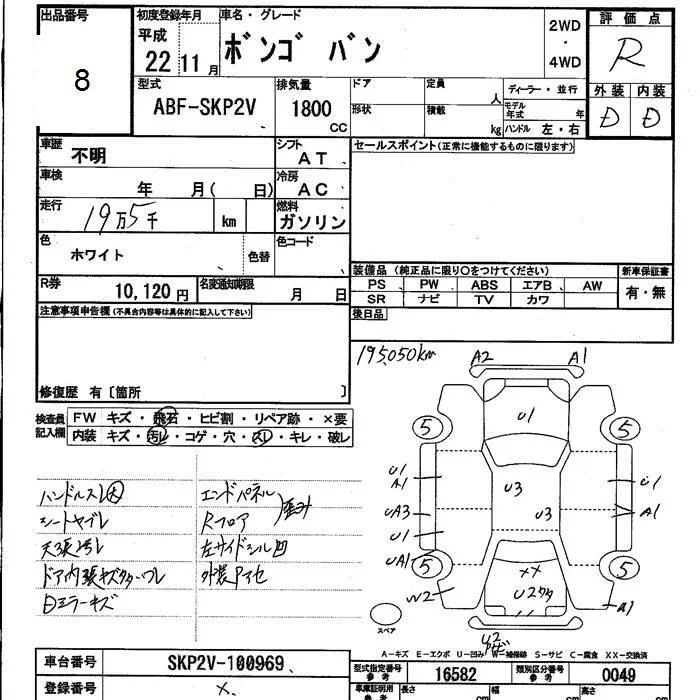 出品番号
8
初度登録年月
平成
22 11月
車名・グレード
ボンゴ バン
2WD
・
4WD
評価点
R
外装 内装
D D
型式
ABF-SKP2V
排気量
1800
CC
ドア
定員
人
形状
積載
kg
ディーラー・並行
モデル年式 年
ハンドル 左・右
車歴
不明
シフト
AT
車検
年 月( 日)
冷房
AC
走行
19万5千
km
燃料
ガソリン
色
ホワイト
色替
色コード
R券
10,120円
名変通知期限
月 日
セールスポイント(正常に機能するものに限ります)
装備品(純正品に限り○をつけてください)
新車保証書
PS PW ABS エアB AW
有・無
SR ナビ TV カワ
後日品
注意事項申告欄(不具合内容等は具体的に記入して下さい)
修復歴 有[箇所 ]
検査員記入欄
FW キズ・飛石・ヒビ割・リペア跡・×要
内装 キズ・汚レ・コゲ・穴・スレ・キレ・破レ
195,050km
A2 A1
U1
5 5
U1
A1
U3
U1
UA3
U3
A1
U1
UA1
5 5
XX
W2
U2
A1
スペア
U2
ハンドルスレ
シートヤブレ
天張汚レ
ドア内張キズ
ミラーキズ
エンドパネル
Rフロア
左サイドシル凹
A-キズ E-エクボ U-凹み W-補修跡 S-サビ C-腐食 XX-交換済
車台番号
SKP2V-100969
登録番号
×
型式指定番号
参考
16582
類別区分番号
参考
0049
車庫証明用
参考
長さ
cm
幅
cm
高さ
cm